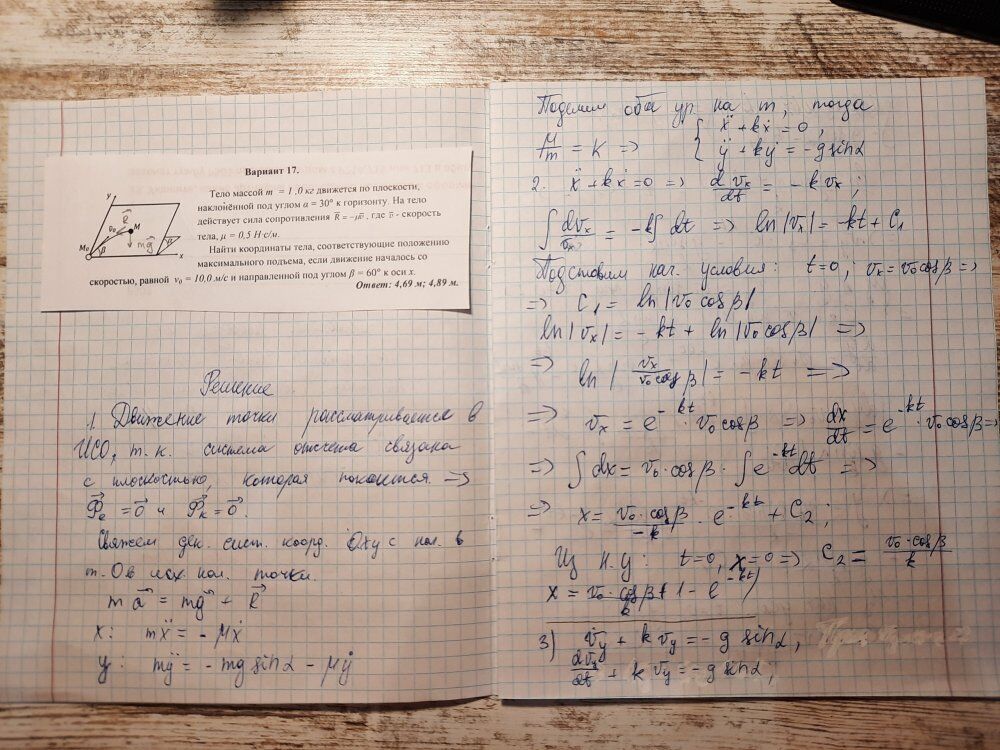 Вариант 17.
Тело массой m = 1,0 кг движется по плоскости,
наклонённой под углом α = 30° к горизонту. На тело
действует сила сопротивления R̄ = −μῡ, где ῡ - скорость
тела, μ = 0,5 Н·с/м.
Найти координаты тела, соответствующие положению
максимального подъема, если движение началось со
скоростью, равной v₀ = 10,0 м/с и направленной под углом β = 60° к оси x.
Ответ: 4,69 м; 4,89 м.
y
R
v₀
M
mg
M₀
β
α
x
Решение
1. Движение точки рассматривается в
ИСО, т.к. система отсчета связана
с плоскостью, которая покоится =>
Φ⃗e = 0⃗ и Φ⃗к = 0⃗.
Свяжем дек. сист. коорд. Oxy с нач. в
т. О в исх. пол. точки.
ma⃗ = mg⃗ + R⃗
x: mẍ = - μẋ
y: mÿ = - mg sinα - μẏ
Поделим оба ур. на m, тогда
μ/m = k => { ẍ + kẋ = 0,
{ ÿ + kẏ = -g sinα
2. ẍ + kẋ = 0 => dvx/dt = - kvx;
∫ dvx/vx = -k∫ dt => ln|vx| = -kt + C₁
Подставим нач. условия: t=0; vx = v₀cosβ =>
=> C₁ = ln|v₀ cosβ|
ln|vx| = - kt + ln|v₀ cosβ| =>
=> ln|vx/v₀cosβ| = - kt =>
=> vx = e^-kt · v₀ cosβ => dx/dt = e^-kt · v₀ cosβ =>
=> ∫ dx = v₀ · cosβ · ∫ e^-kt dt =>
=> x = v₀ · cosβ/-k · e^-kt + C₂;
Из н.у: t=0, x=0 => C₂ = v₀ · cosβ/k
x = v₀ · cosβ/k (1 - e^-kt)
3) v̇y + k vy = - g sinα,
dvy/dt + k vy = - g sinα;